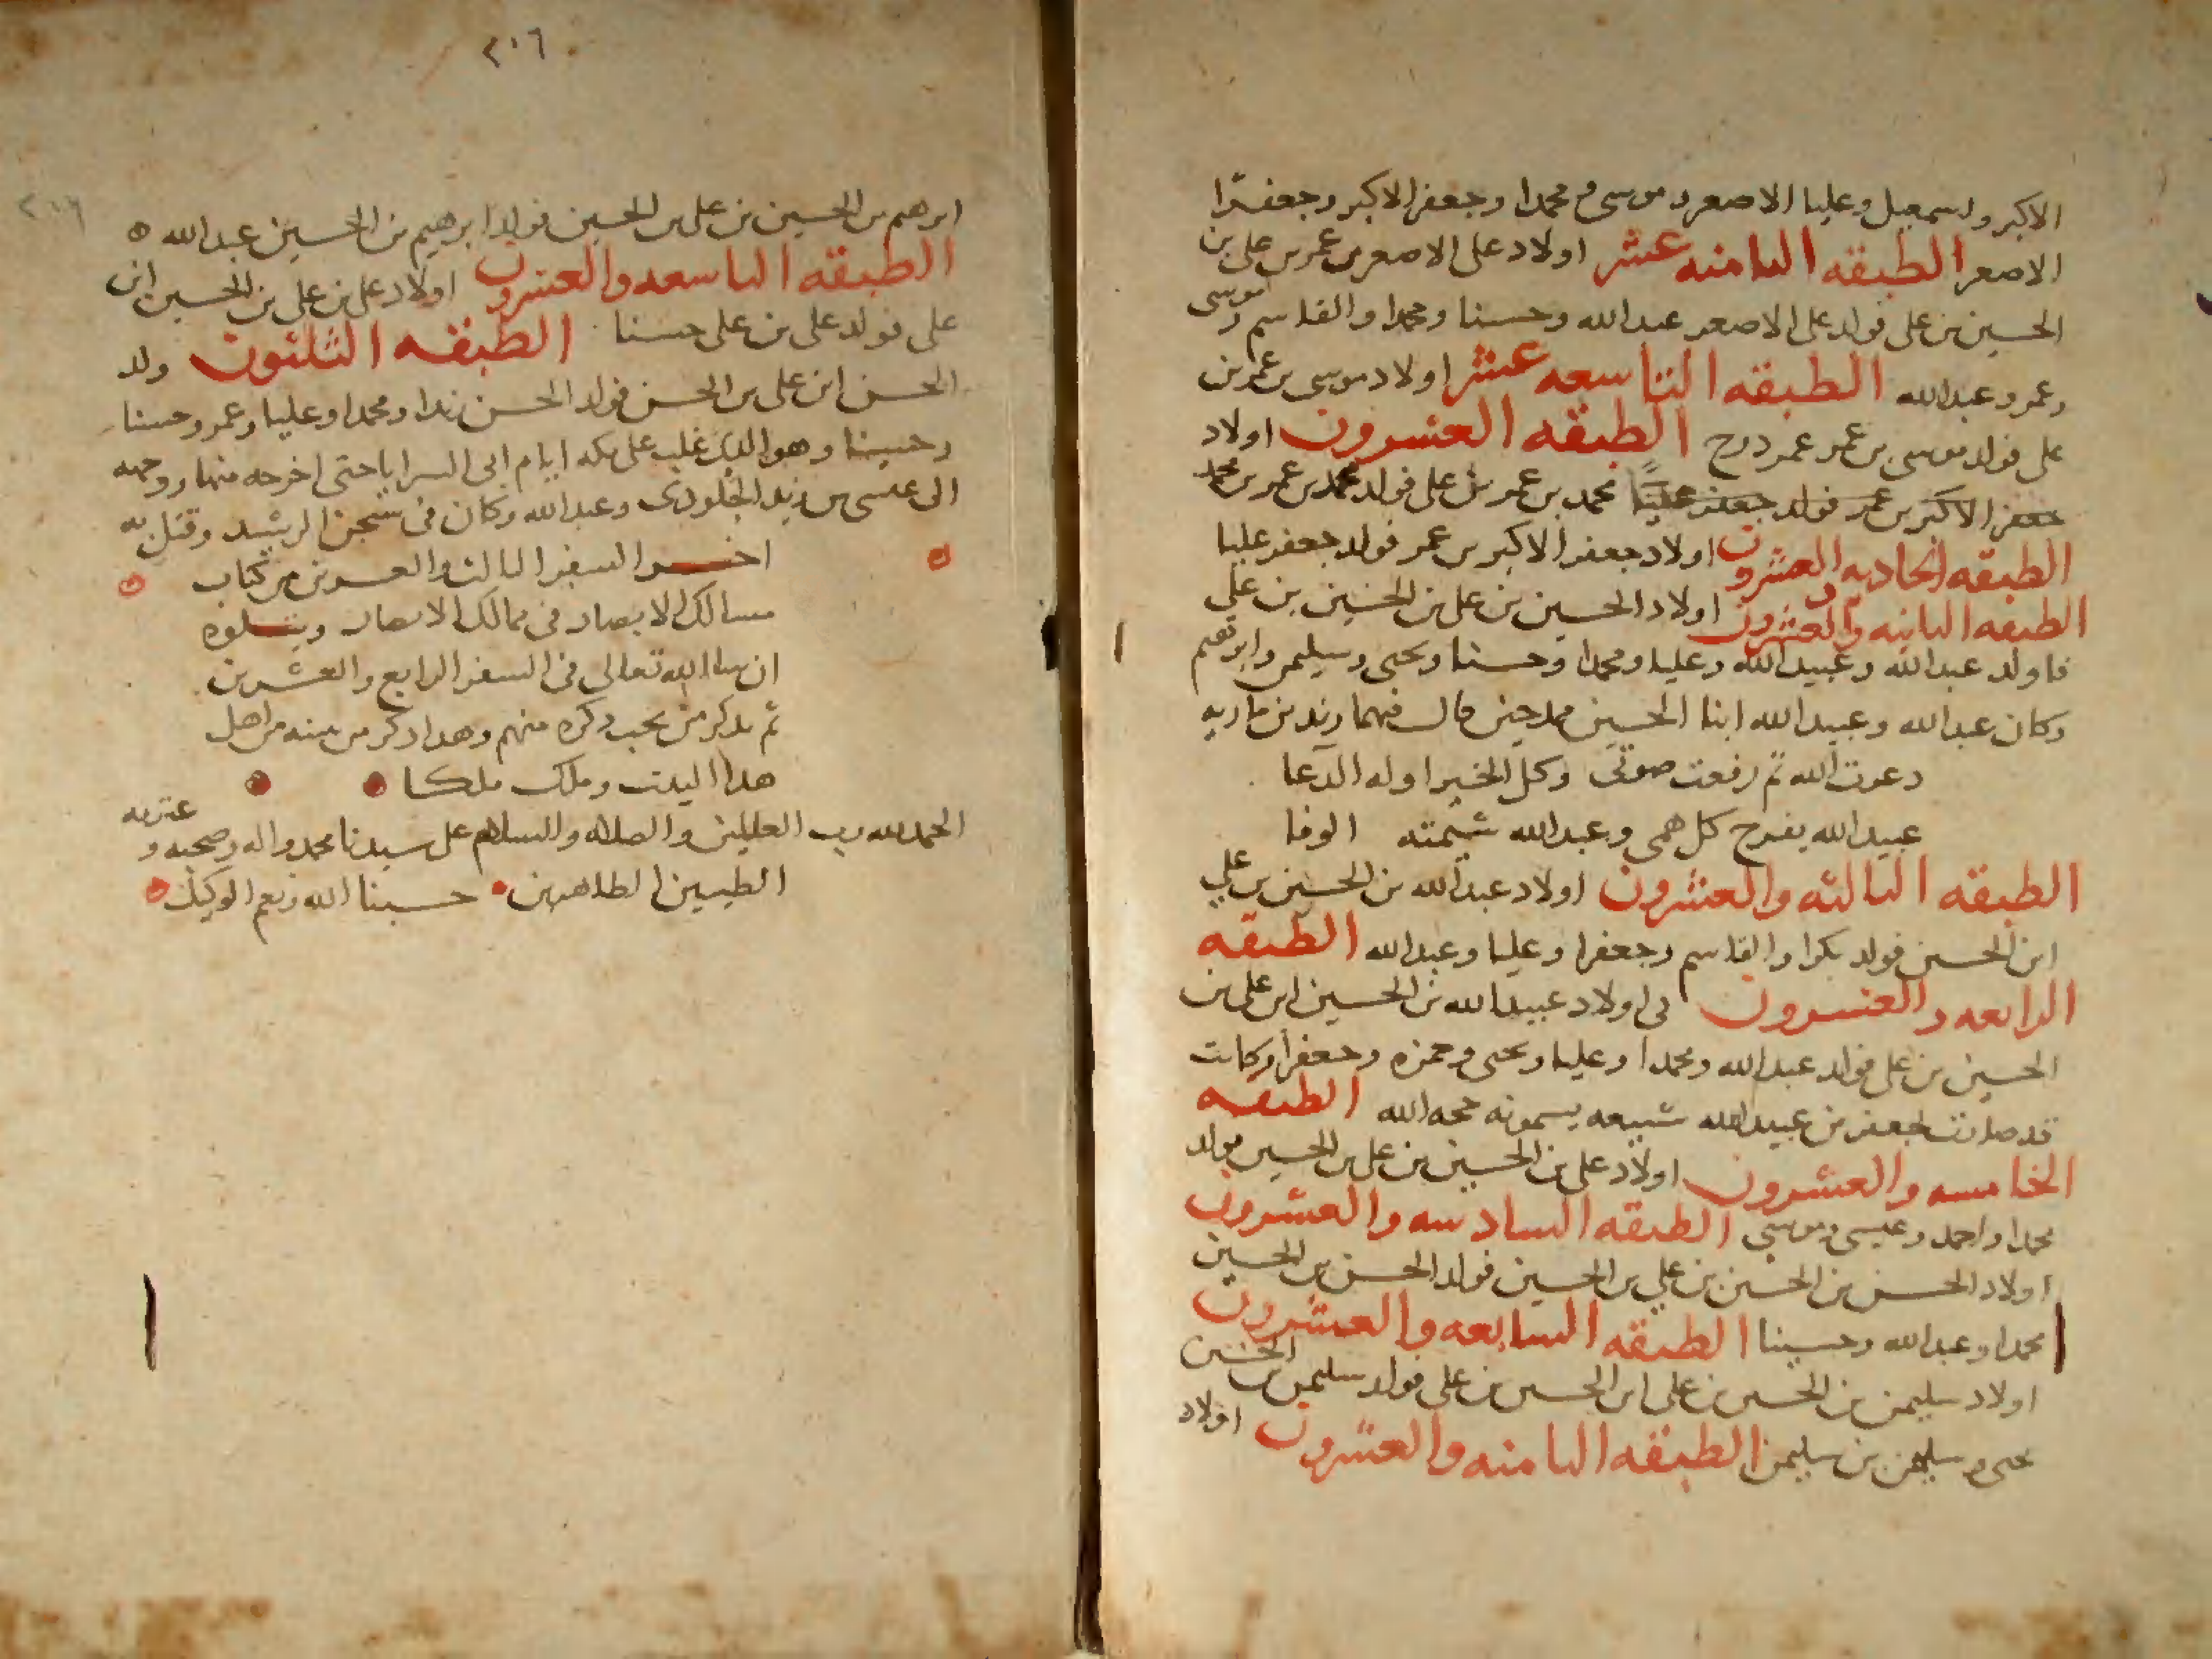 الاكبر واسمعيل وعليا الاصغر وموسى ومحمدا وجعفر الاكبر وجعفرا
الاصغر الطبقه الثامنه عشر اولاد على الاصغر بن عمر بن على بن
الحسين بن على فولد على الاصغر عبد الله وحسنا ومحمدا والقاسم وموسى
وعمر وعبد الله الطبقه التاسعه عشر اولاد موسى بن عمر بن
على فولد موسى بن عمر عمر درج الطبقه العشرون اولاد
جعفر الاكبر بن عمر فولد جعفر عليا محمد بن عمر بن على فولد محمد بن عمر بن محمد
الطبقه الحاديه والعشرون اولاد جعفر الاكبر بن عمر فولد جعفر عليا
الطبقه الثانيه والعشرون اولاد الحسين بن على بن الحسين بن على
فاولد عبد الله وعبيد الله وعليا ومحمدا وحسنا ويحيى وسليمن وابرهيم
وكان عبد الله وعبيد الله ابنا الحسين ممدحين قال فيهما زيد بن ماريه
دعوت الله ثم رفعت صوتى وكل الخير اوله الدعا
عبيد الله يفرج كل همى وعبد الله شيمته الوفا
الطبقه الثالثه والعشرون اولاد عبد الله بن الحسين بن على
ابن الحسين فولد بكرا والقاسم وجعفرا وعليا وعبد الله الطبقه
الرابعه والعشرون فى اولاد عبيد الله بن الحسين ابن على بن
الحسين بن على فولد عبد الله ومحمدا وعليا ويحيى وحمزه وجعفرا وكانت
قد صارت لجعفر بن عبيد الله شيعه يسمونه حجه الله الطبقه
الخامسه والعشرون اولاد على بن الحسين بن على بن الحسين فولد
محمدا واحمد وعيسى وموسى الطبقه السادسه والعشرون
اولاد الحسن بن الحسين بن على بن الحسين فولد الحسن بن الحسين
محمدا وعبد الله وحسينا الطبقه السابعه والعشرون
اولاد سليمن بن الحسين بن على ابن الحسين بن على فولد سليمن بن الحسين
يحيى وسليمن بن سليمن الطبقه الثامنه والعشرون اولاد
٢٠٦
٢٠٦
ابرهيم بن الحسين بن على بن الحسين فولد ابرهيم بن الحسين عبد الله
الطبقه التاسعه والعشرون اولاد على بن على بن الحسين ابن
على فولد على بن على حسنا الطبقه الثلثون ولد
الحسن ابن على بن الحسن فولد الحسن زيدا ومحمدا وعليا وعمر وحسنا
وحسينا وهو الذى غلب على مكه ايام ابى السرايا حتى اخرجه منها ورحمه
الى عيسى بن زيد الجلودى وعبد الله وكان فى سجن الرشيد وقتل به
اخر السفر الثالث والعشرين من كتاب
مسالك الابصار فى ممالك الامصار ويتلوه
ان شا الله تعالى فى السفر الرابع والعشرين
ثم نذكر من يجب ذكره منهم وهذا ذكر من منه من اهل
هذا البيت وملك ملكا
الحمد لله رب العالمين والصلاه والسلام على سيدنا محمد واله وصحبه وعترته
الطيبين الطاهرين حسبنا الله ونعم الوكيل